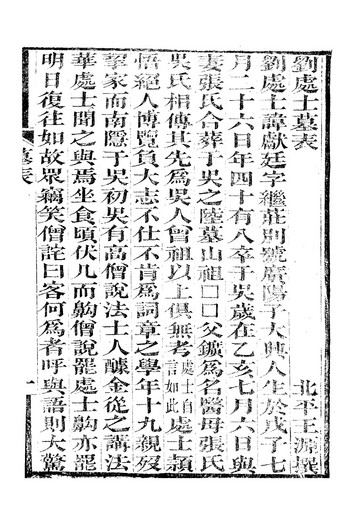 劉處士墓表
北平王源撰
劉處士諱獻廷字繼莊別號廣陽子大興人生於戊子七
月二十六日年四十有八卒于吳歲在乙亥七月六日與
妻張氏合葬于吳之陸墓山祖□□父鑛爲名醫母張氏
吳氏相傳其先爲吳人曾祖以上俱無考處士自言如此處士穎
悟絕人博覽負大志不仕不肯爲詞章之學年十九親歿
挈家而南隱于吳初吳有高僧說法士人醵金從之講法
華處士聞之與焉坐食頃伏几而齁僧說罷處士齁亦罷
明日復往如故眾竊笑僧詫曰客何爲者呼與語則大驚
墓表
一